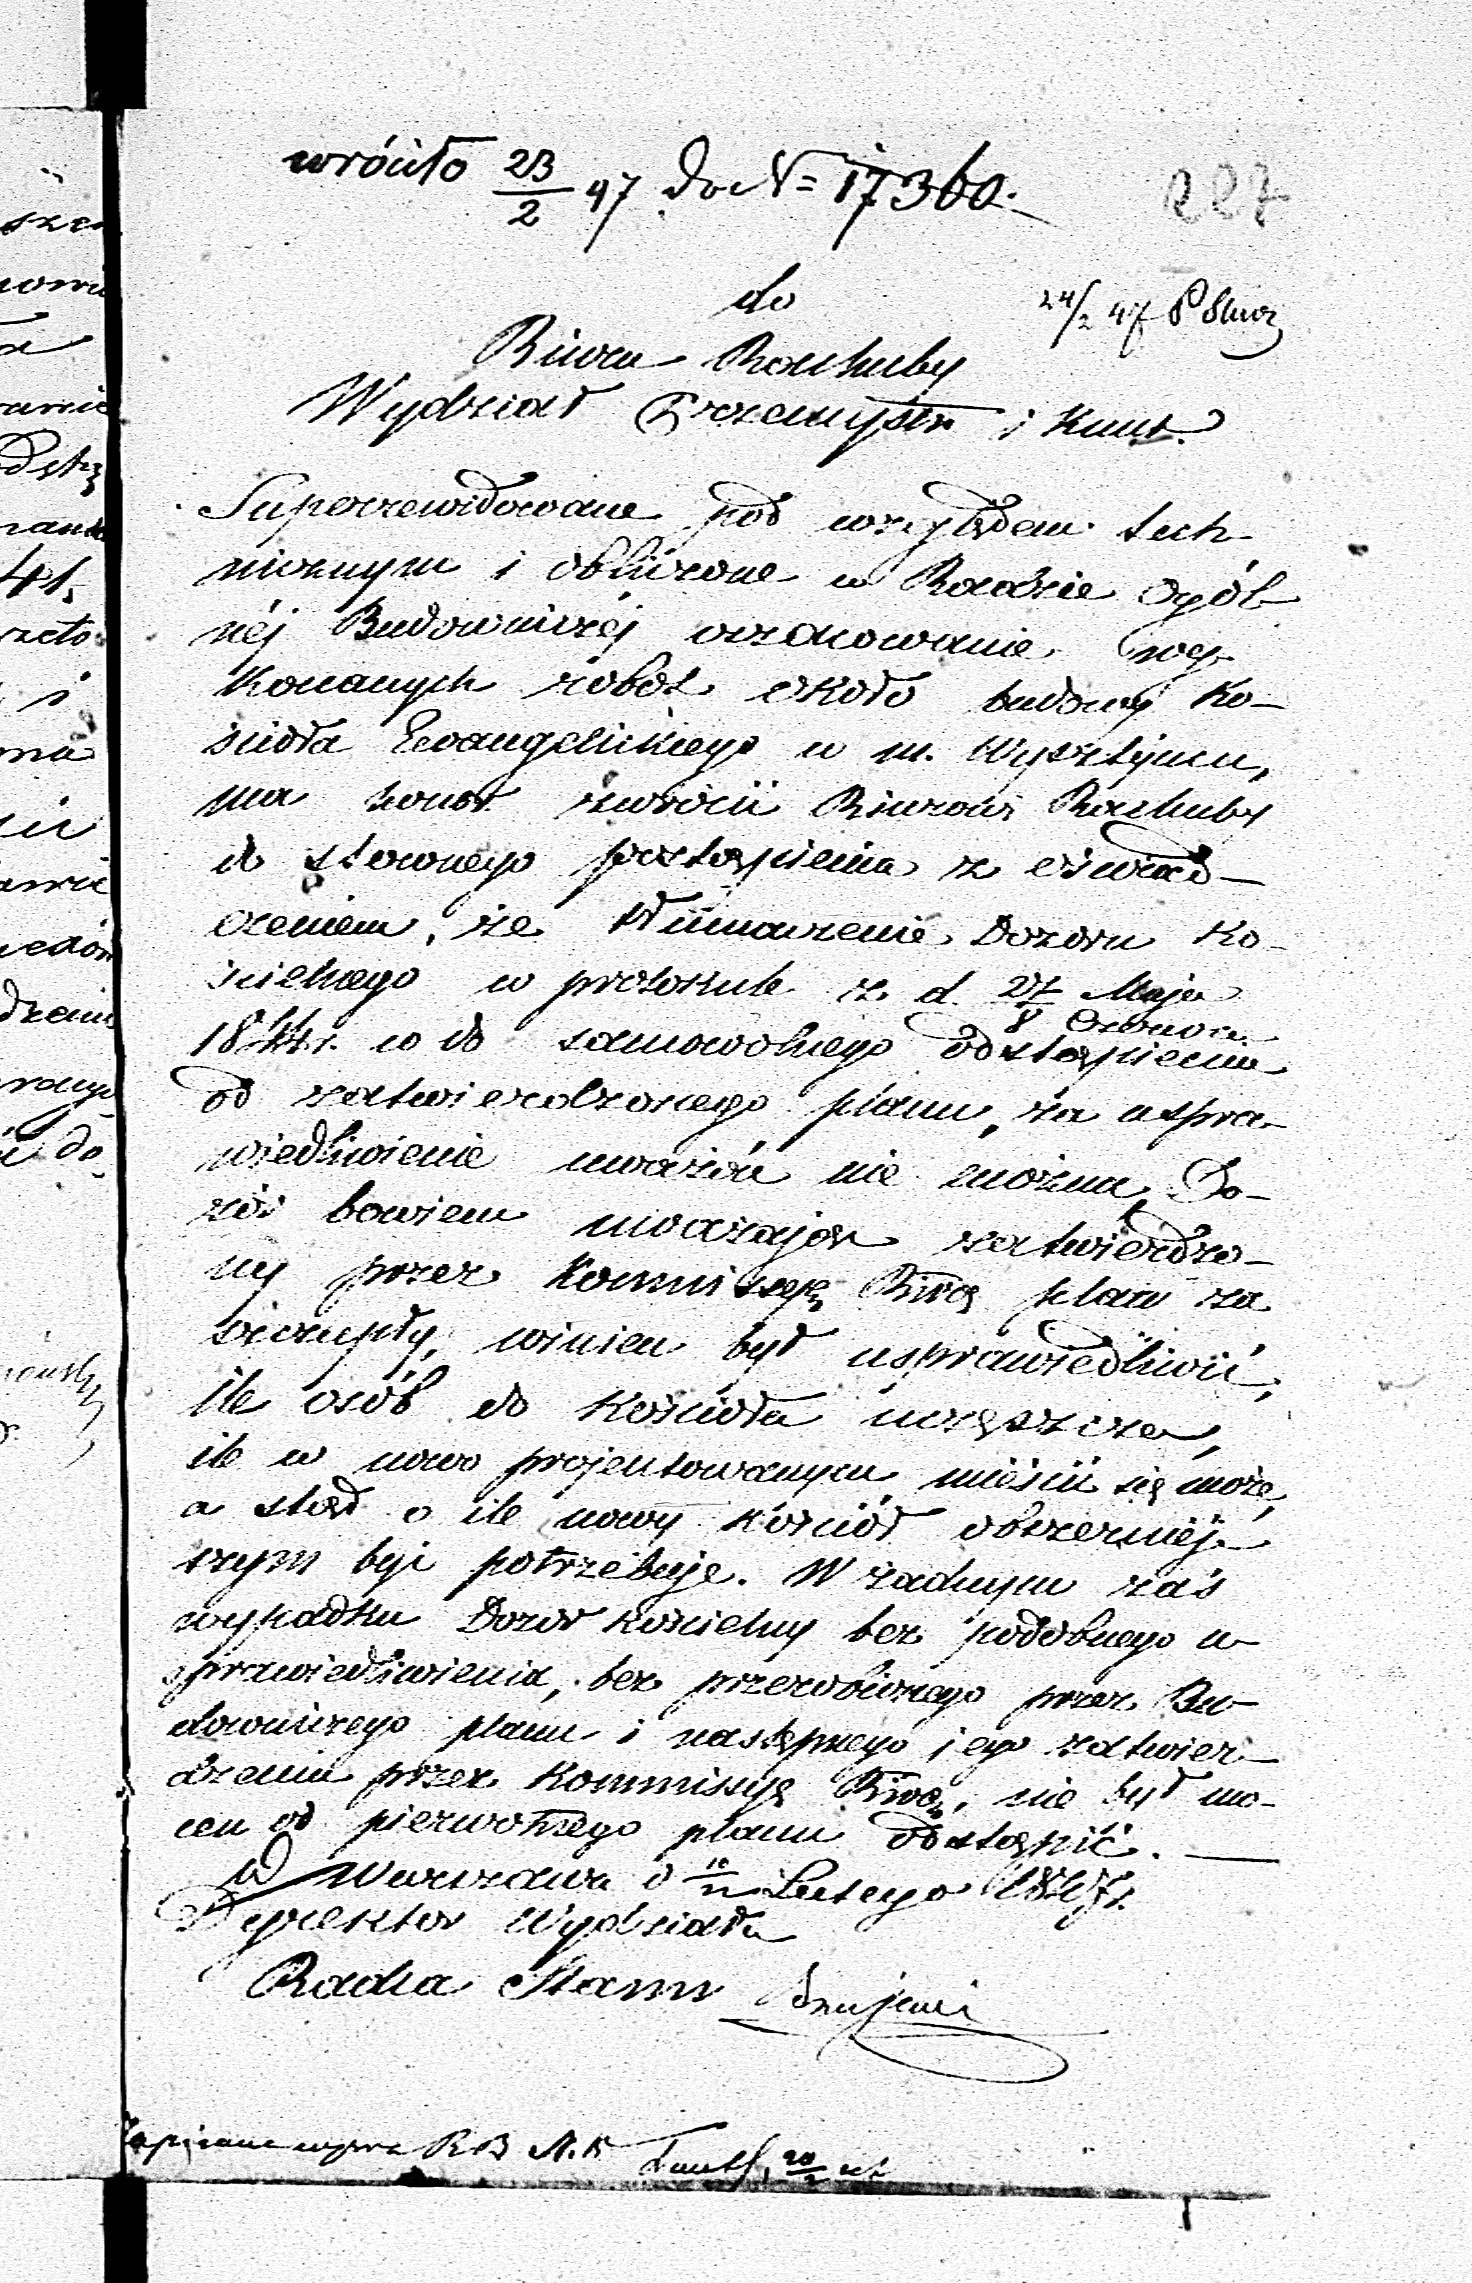 wróciło 23/2 47 do N= 17360.
227
do
24/2 47
Biura Rachuby
Wydział Przemysłu i Kunt.
Superrewidowane pod względem tech-
nicznym i obliczone w Radzie Ogól-
néj Budowniczéj oszacowanie wy-
konanych robót około budowy Ko-
ścioła Ewangelickiego w m. Wysztyńcu,
ma honor zwrócić Biurowi Rachuby
do stownego postąpienia z oświad-
czeniem, że tłumaczenie Dozoru Ko-
ścielnego w protokule z d. 27 Maja
8 Czerwca
1844 r. co do samowolnego odstąpienia
od zatwierdzonego planu, za uspra-
wiedliwienie uważać nie można, Do-
zór bowiem uważając zatwierdzo-
ny przez Kommissyę Rzwą plan za
szczupły, winien był usprawiedliwić,
ile osób do Kościoła uczęszcza,
ile w nowo projektowanym mieścić się może,
a stąd o ile nowy Kościół obszerniéj-
szym być potrzebuje. W żadnym zaś
wypadku Dozór Kościelny bez podobnego u-
sprawiedliwienia, bez przerobionego przez Bu-
downiczego planu i następnego jego zatwier-
dzenia przez Kommissyę Rzwą, nie był mo-
cen od pierwotnego planu odstąpić.
w Warszawie d 10/22 Lutego 1847 r.
Dyrektor Wydziału
Radca Stanu
20/2